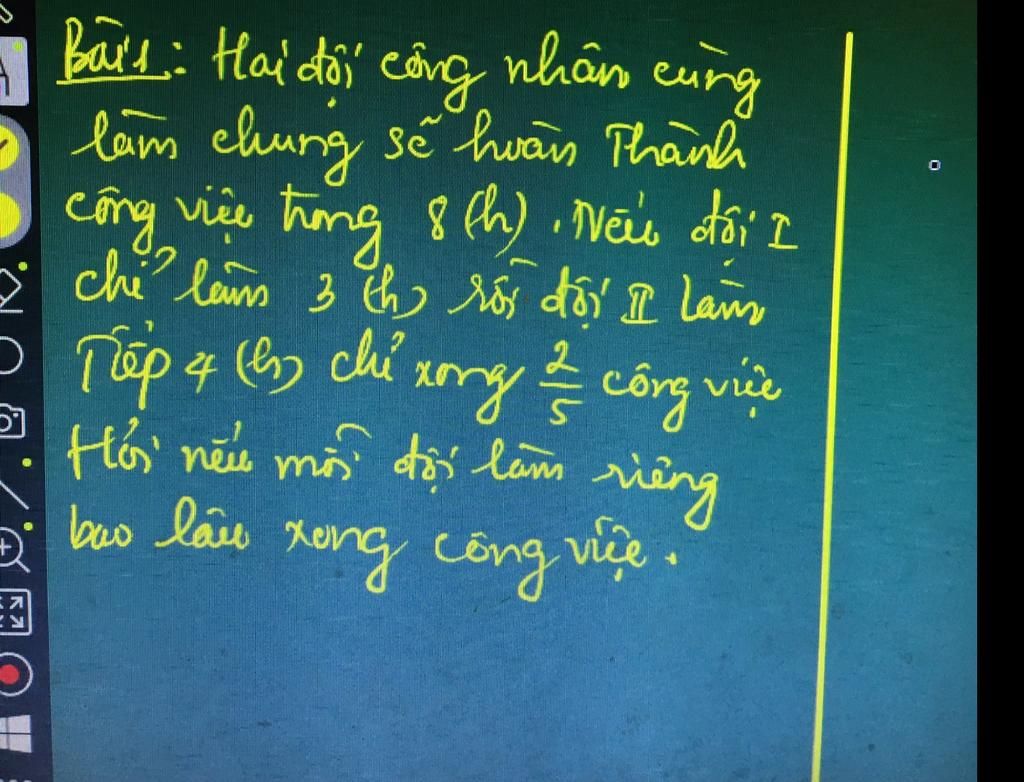 Bài 1: Hai đội công nhân cùng
làm chung sẽ hoàn Thành
công việc trong 8 (h). Nếu đội I
chỉ làm 3 (h) rồi đội II làm
Tiếp 4 (h) chỉ xong 2/5 công việc
Hỏi nếu mỗi đội làm riêng
bao lâu xong công việc.